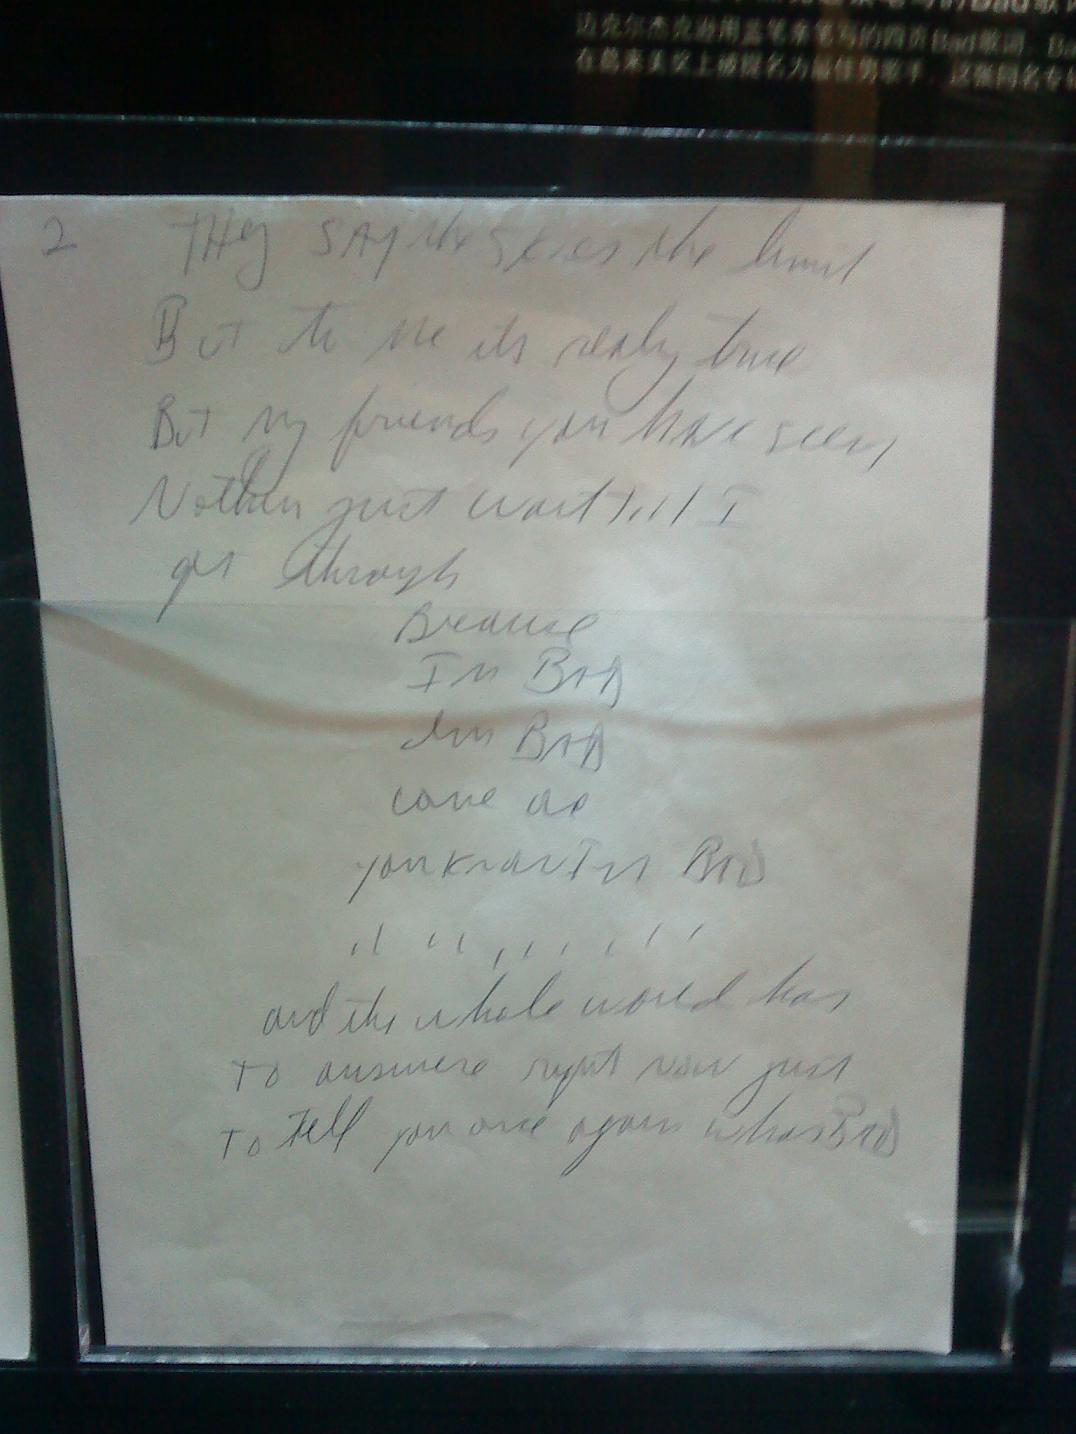 迈克尔杰克逊用蓝笔亲笔写的四页Bad歌词，Ba
在葛莱美奖上被提名为最佳男歌手，这张同名专辑
2 THey SAy the skies the limit
But to me its really true
But my friends you have seen
Nothin just wait till I
get through
Because
Im BAD
Im BAD
come on
you know Im BAD
,, ,, ,, ,, ,, ,,
and the whole world has
To answere right now just
To Tell you once again whos BAD